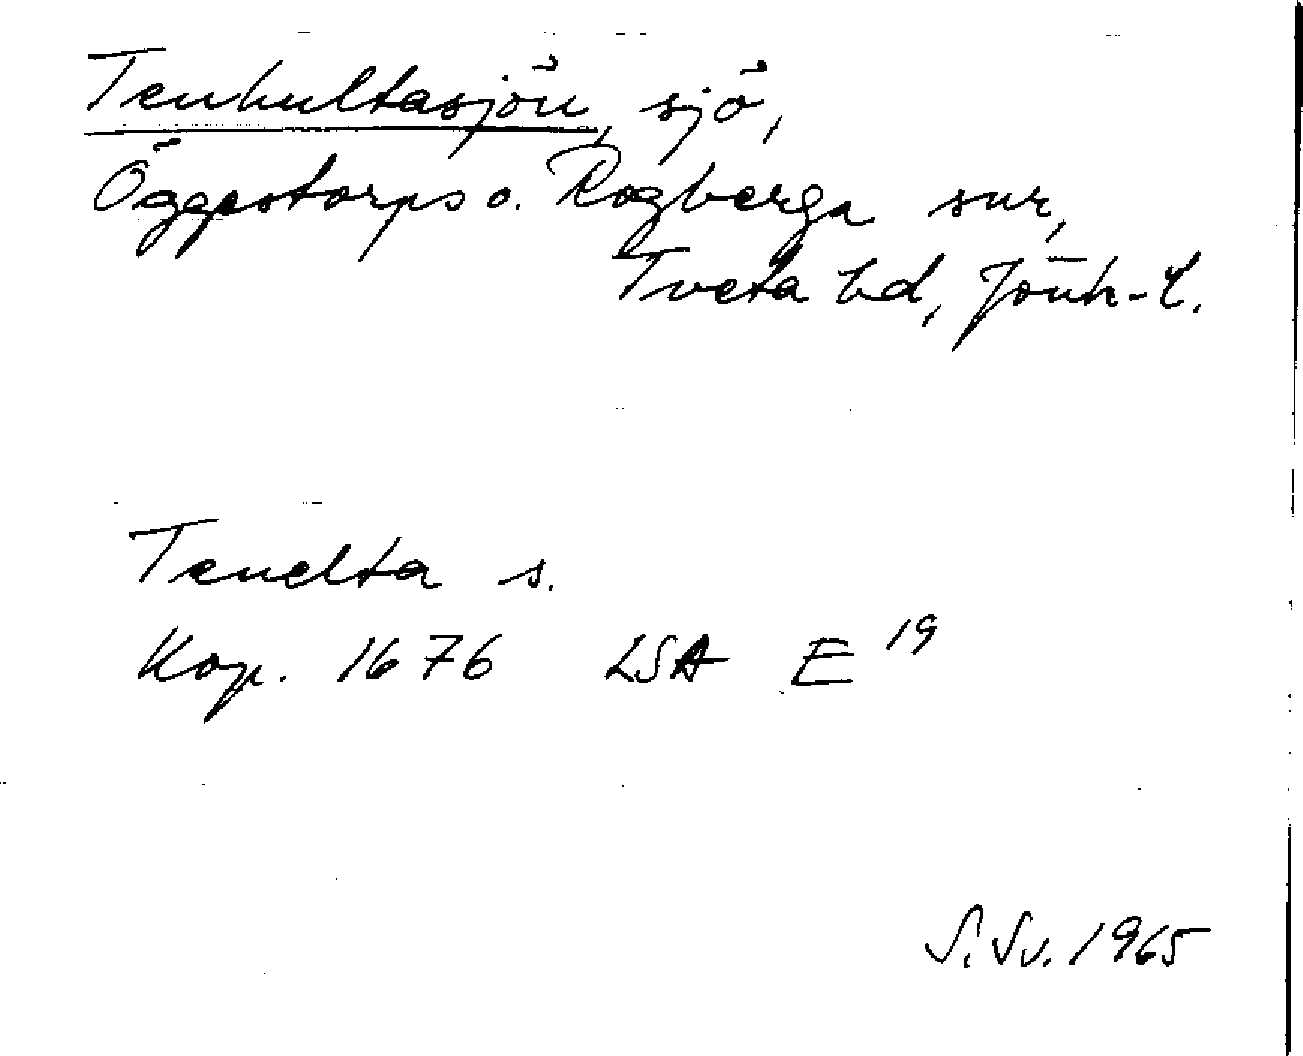 Tenhultasjön, sjö,
Öggestorps o. Rogberga snr,
Tveta hd, Jönk-l.
Tenelta s.
Kop. 1676 LSA E 19
S. Sv. 1965